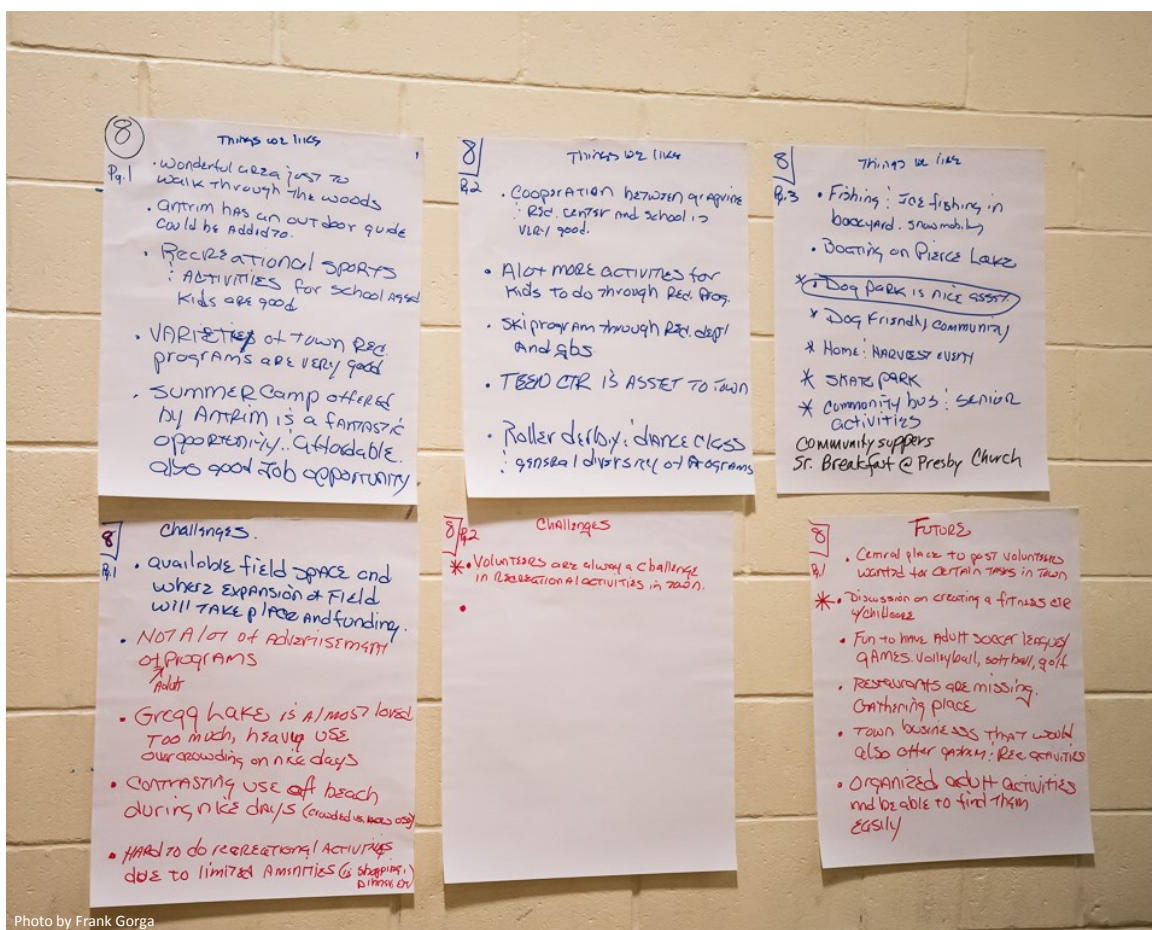 8
Things we like
Pg.1
• Wonderful area just to
walk through the woods
• Antrim has an outdoor guide
could be added to.
• Recreational sports
: Activities for school aged
kids are good
• Varieties of Town Rec.
programs are very good
• Summer Camp offered
by Antrim is a fantastic
opportunity: affordable.
also good Job opportunity
8
Things we like
Pg.2
• Cooperation between
: Rec. center and school is
very good.
• Alot more activities for
kids to do through Rec. Prog.
• Ski program through Rec. dept/
And gbs
• Teen Ctr is asset to town
• Roller derby: dance class
: general diversity of Programs
8
Things we like
Pg.3
• Fishing: Ice fishing in
backyard. snowmobiling
• Boating on Pierce Lake
* • Dog park is nice asset.
* Dog Friendly community
* Home: Harvest event
* Skate park
* Community bus: senior
activities
Community suppers
Sr. Breakfast @ Presby Church
8
Challenges.
Pg.1
• available field space and
where expansion of Field
will take place and funding.
• Not Alot of Advertisement
of Programs
Adult
• Gregg Lake is almost loved
too much, heavy use
overcrowding on nice days
• Contrasting use of beach
during nice days (crowded vs.
• Hard to do recreational Activities
due to limited Amenities (ie shopping,
Dinner
8
Pg.2
Challenges
* • Volunteers are always a challenge
in Recreational activities in town.
•
8
Future
Pg.1
• Central place to post volunteers
wanted for certain tasks in Town
* • Discussion on creating a fitness ctr
w/childcare
• Fun to have Adult soccer leagues/
games. Volleyball, softball, golf
• Restaurants are missing.
Gathering place
• Town businesses that would
also offer : Rec activities
• Organized adult activities
and be able to find them
easily
Photo by Frank Gorga